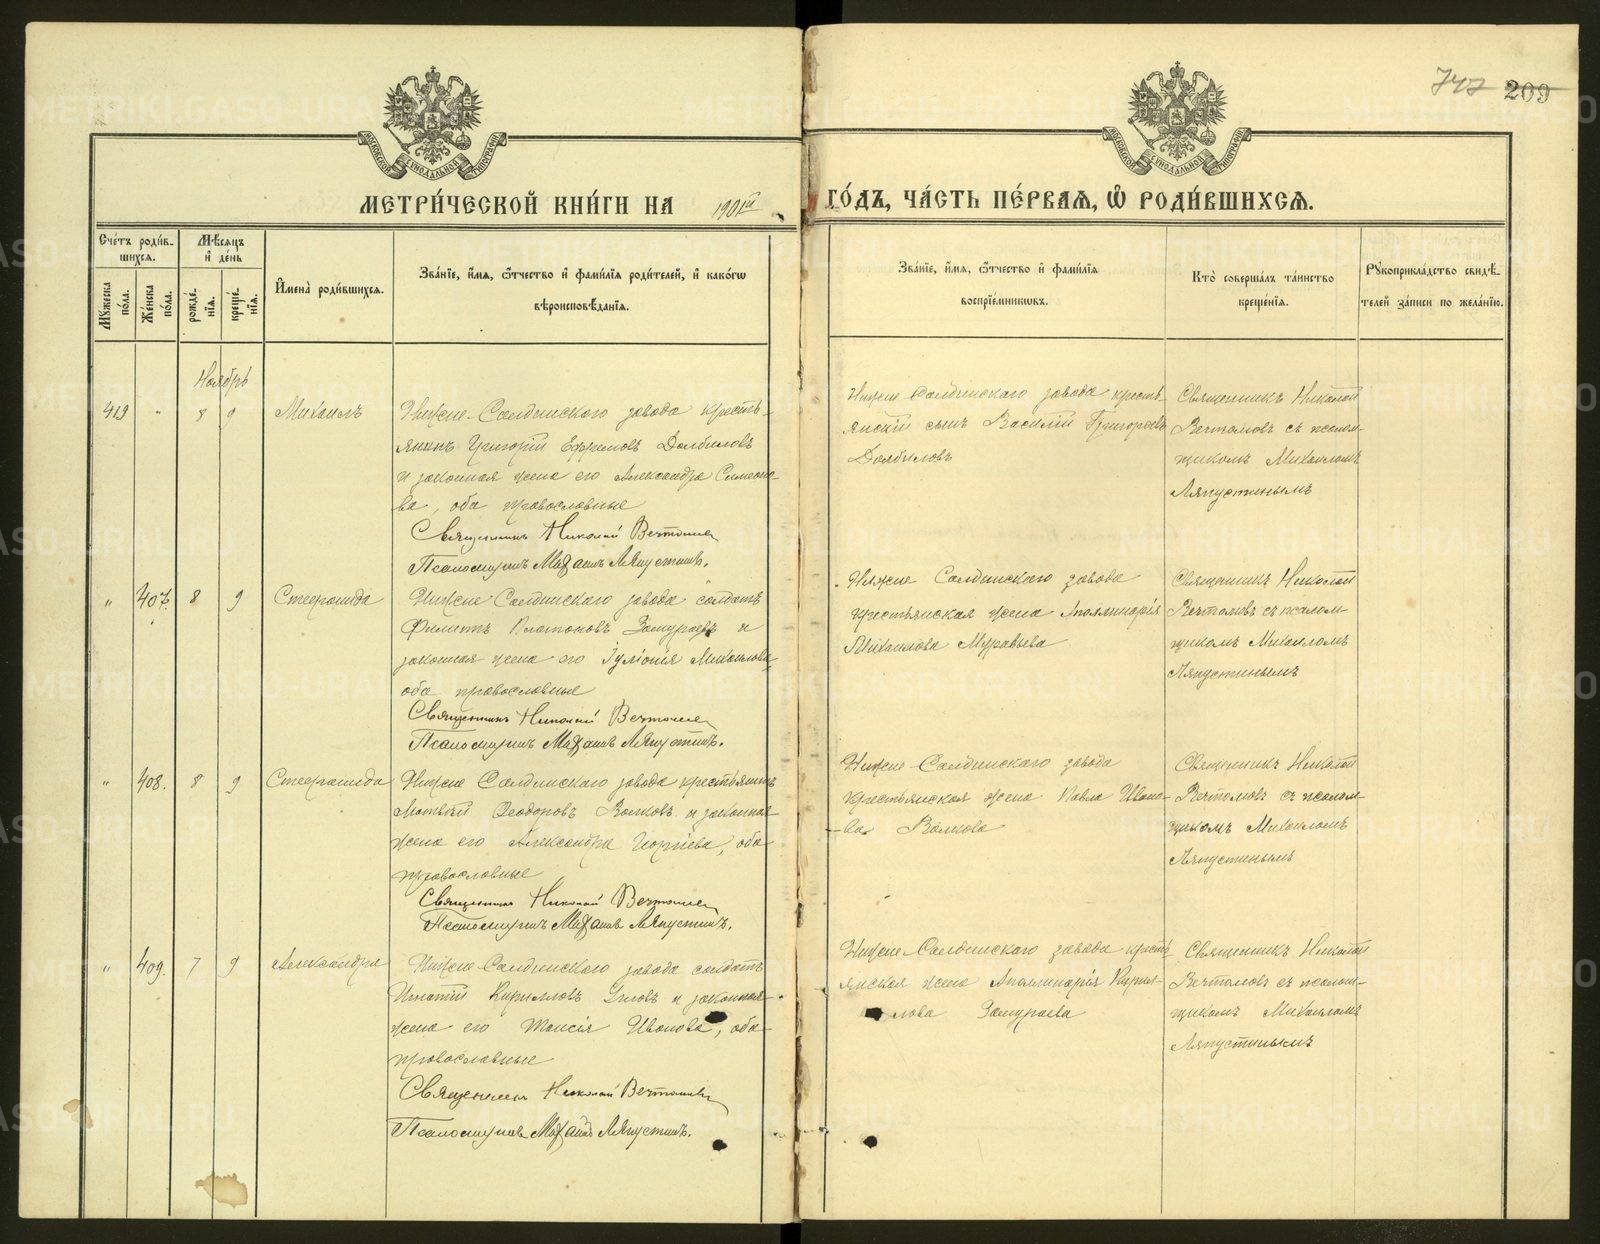 747 209
МЕТРИ́ЧЕСКОЙ КНИ́ГИ НА 1901й ГО́ДЪ, ЧА́СТЬ ПЕ́РВАЯ, Ѿ РОДИ́ВШИХСЯ.
Счетъ роди́вшихся.
Мужеска пола.
Женска пола.
Мѣсяцъ и день
рожде́нія.
креще́нія.
Имена̀ роди́вшихся.
Зва́ніе, и́мя, ѻ҆́тчество и фами́лія роди́телей, и како́гѡ
вѣроисповѣ́данія.
Зва́ніе, и́мя, ѻ҆́тчество и фами́лія
воспріе́мниковъ.
Кто̀ соверша́лъ та́инство
креще́нія.
Рукоприкла́дство свидѣ́-
телей за́писи по жела́нію.
Ноябрь
419 " 8 9 Михаилъ
Нижне-Салдинскаго завода кресть-
янинъ Григорій Ефремовъ Долбиловъ
и законная жена его Александра Симеоно-
ва, оба православные
Священникъ Николай Вечтомовъ
Псаломщикъ Михаилъ Ляпустинъ.
Нижне-Салдинскаго завода кресть-
янскій сынъ Василій Григорьевъ
Долбиловъ
Священникъ Николай
Вечтомовъ съ псалом-
щикомъ Михаиломъ
Ляпустинымъ
" 407. 8 9 Стефанида
Нижне-Салдинскаго завода солдатъ
Филиппъ Платоновъ Замураевъ и
законная жена его Іуліонія Михаилова,
оба православные
Священникъ Николай Вечтомовъ
Псаломщикъ Михаилъ Ляпустинъ.
Нижне Салдинскаго завода
крестьянская жена Аполлинарія
Михаилова Муравьева
Священникъ Николай
Вечтомовъ съ псалом-
щикомъ Михаиломъ
Ляпустинымъ
" 408. 8 9 Стефанида
Нижне Салдинскаго завода крестьянинъ
Матвѣй Ѳеодоровъ Волковъ и законная
жена его Александра Георгіева, оба
православные
Священникъ Николай Вечтомовъ
Псаломщикъ Михаилъ Ляпустинъ.
Нижне-Салдинскаго завода
крестьянская жена Павла Ивано-
ва Волкова
Священникъ Николай
Вечтомовъ съ псалом-
щикомъ Михаиломъ
Ляпустинымъ
" 409. 7 9 Александра
Нижне-Салдинскаго завода солдатъ
Игнатій Кирилловъ и законная
жена его Таисія Иванова, оба
православные
Священникъ Николай Вечтомовъ
Псаломщикъ Михаилъ Ляпустинъ.
Нижне-Салдинскаго завода кресть-
янская жена Аполлинарія Кирил-
лова Замураева
Священникъ Николай
Вечтомовъ съ псалом-
щикомъ Михаиломъ
Ляпустинымъ
METRIKI.GASO-URAL.RU